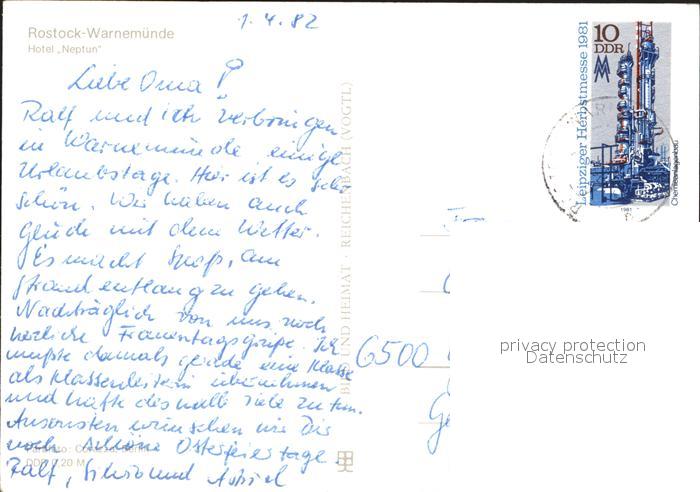 1.4.82
Rostock-Warnemünde
Hotel „Neptun“
Liebe Oma!
Ralf und ich verbringen
in Warnemünde einige
Urlaubstage. Hier ist es sehr
schön. Wir haben auch
glück mit dem Wetter.
Es macht Spaß, am
Strand entlang zu gehen.
Nachträglich von uns noch
herzliche Frauentagsgrüße. Ich
mußte damals gerade eine Klasse
als Klassenleiterin übernehmen
und hatte deshalb viele zu tun.
Ansonsten wünschen wir Dir
noch schöne Osterfeiertage.
Ralf, Silvio und Astrid
DDR 0,20 M
BILD UND HEIMAT · REICHENBACH (VOGTL)
6500
Leipziger Herbstmesse 1981
10
DDR
Chemieanlagenbau
1981
privacy protection
Datenschutz